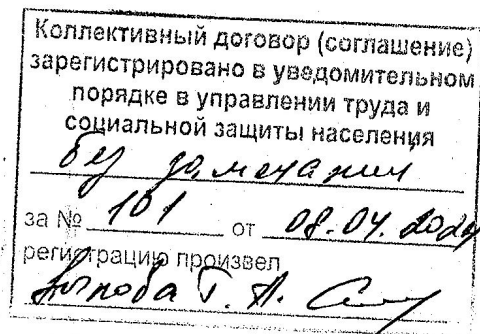 Коллективный договор (соглашение)
зарегистрировано в уведомительном
порядке в управлении труда и
социальной защиты населения
без замечаний
за № 101 от 08.04.2024
регистрацию произвел
Г. А.